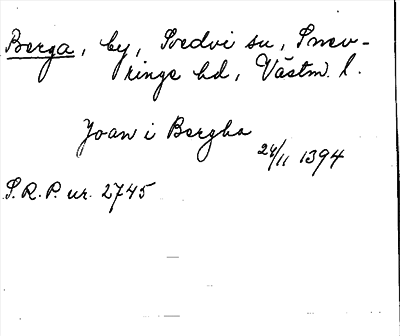 Berga, by, Svedvi sn, Snev-
ringe hd, Västm. l.
Joan i Bergha
24/11 1394
S.R.P. nr. 2745